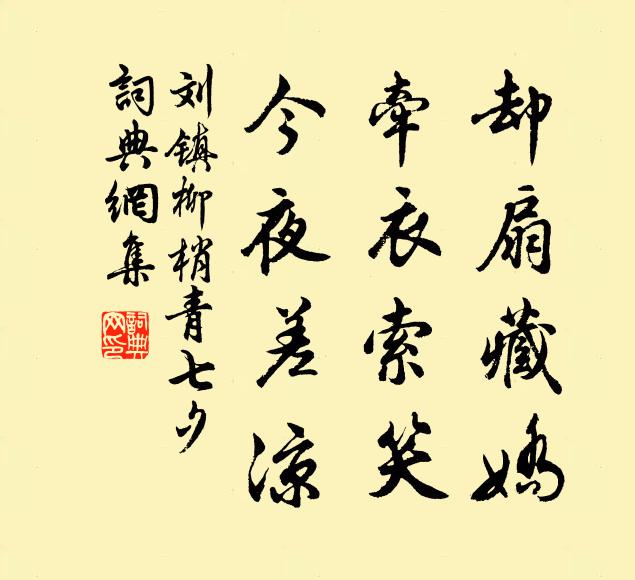 却扇藏嬌
牽衣索笑
今夜差涼
刘镇柳梢青七夕
詞典網集
詞典网印